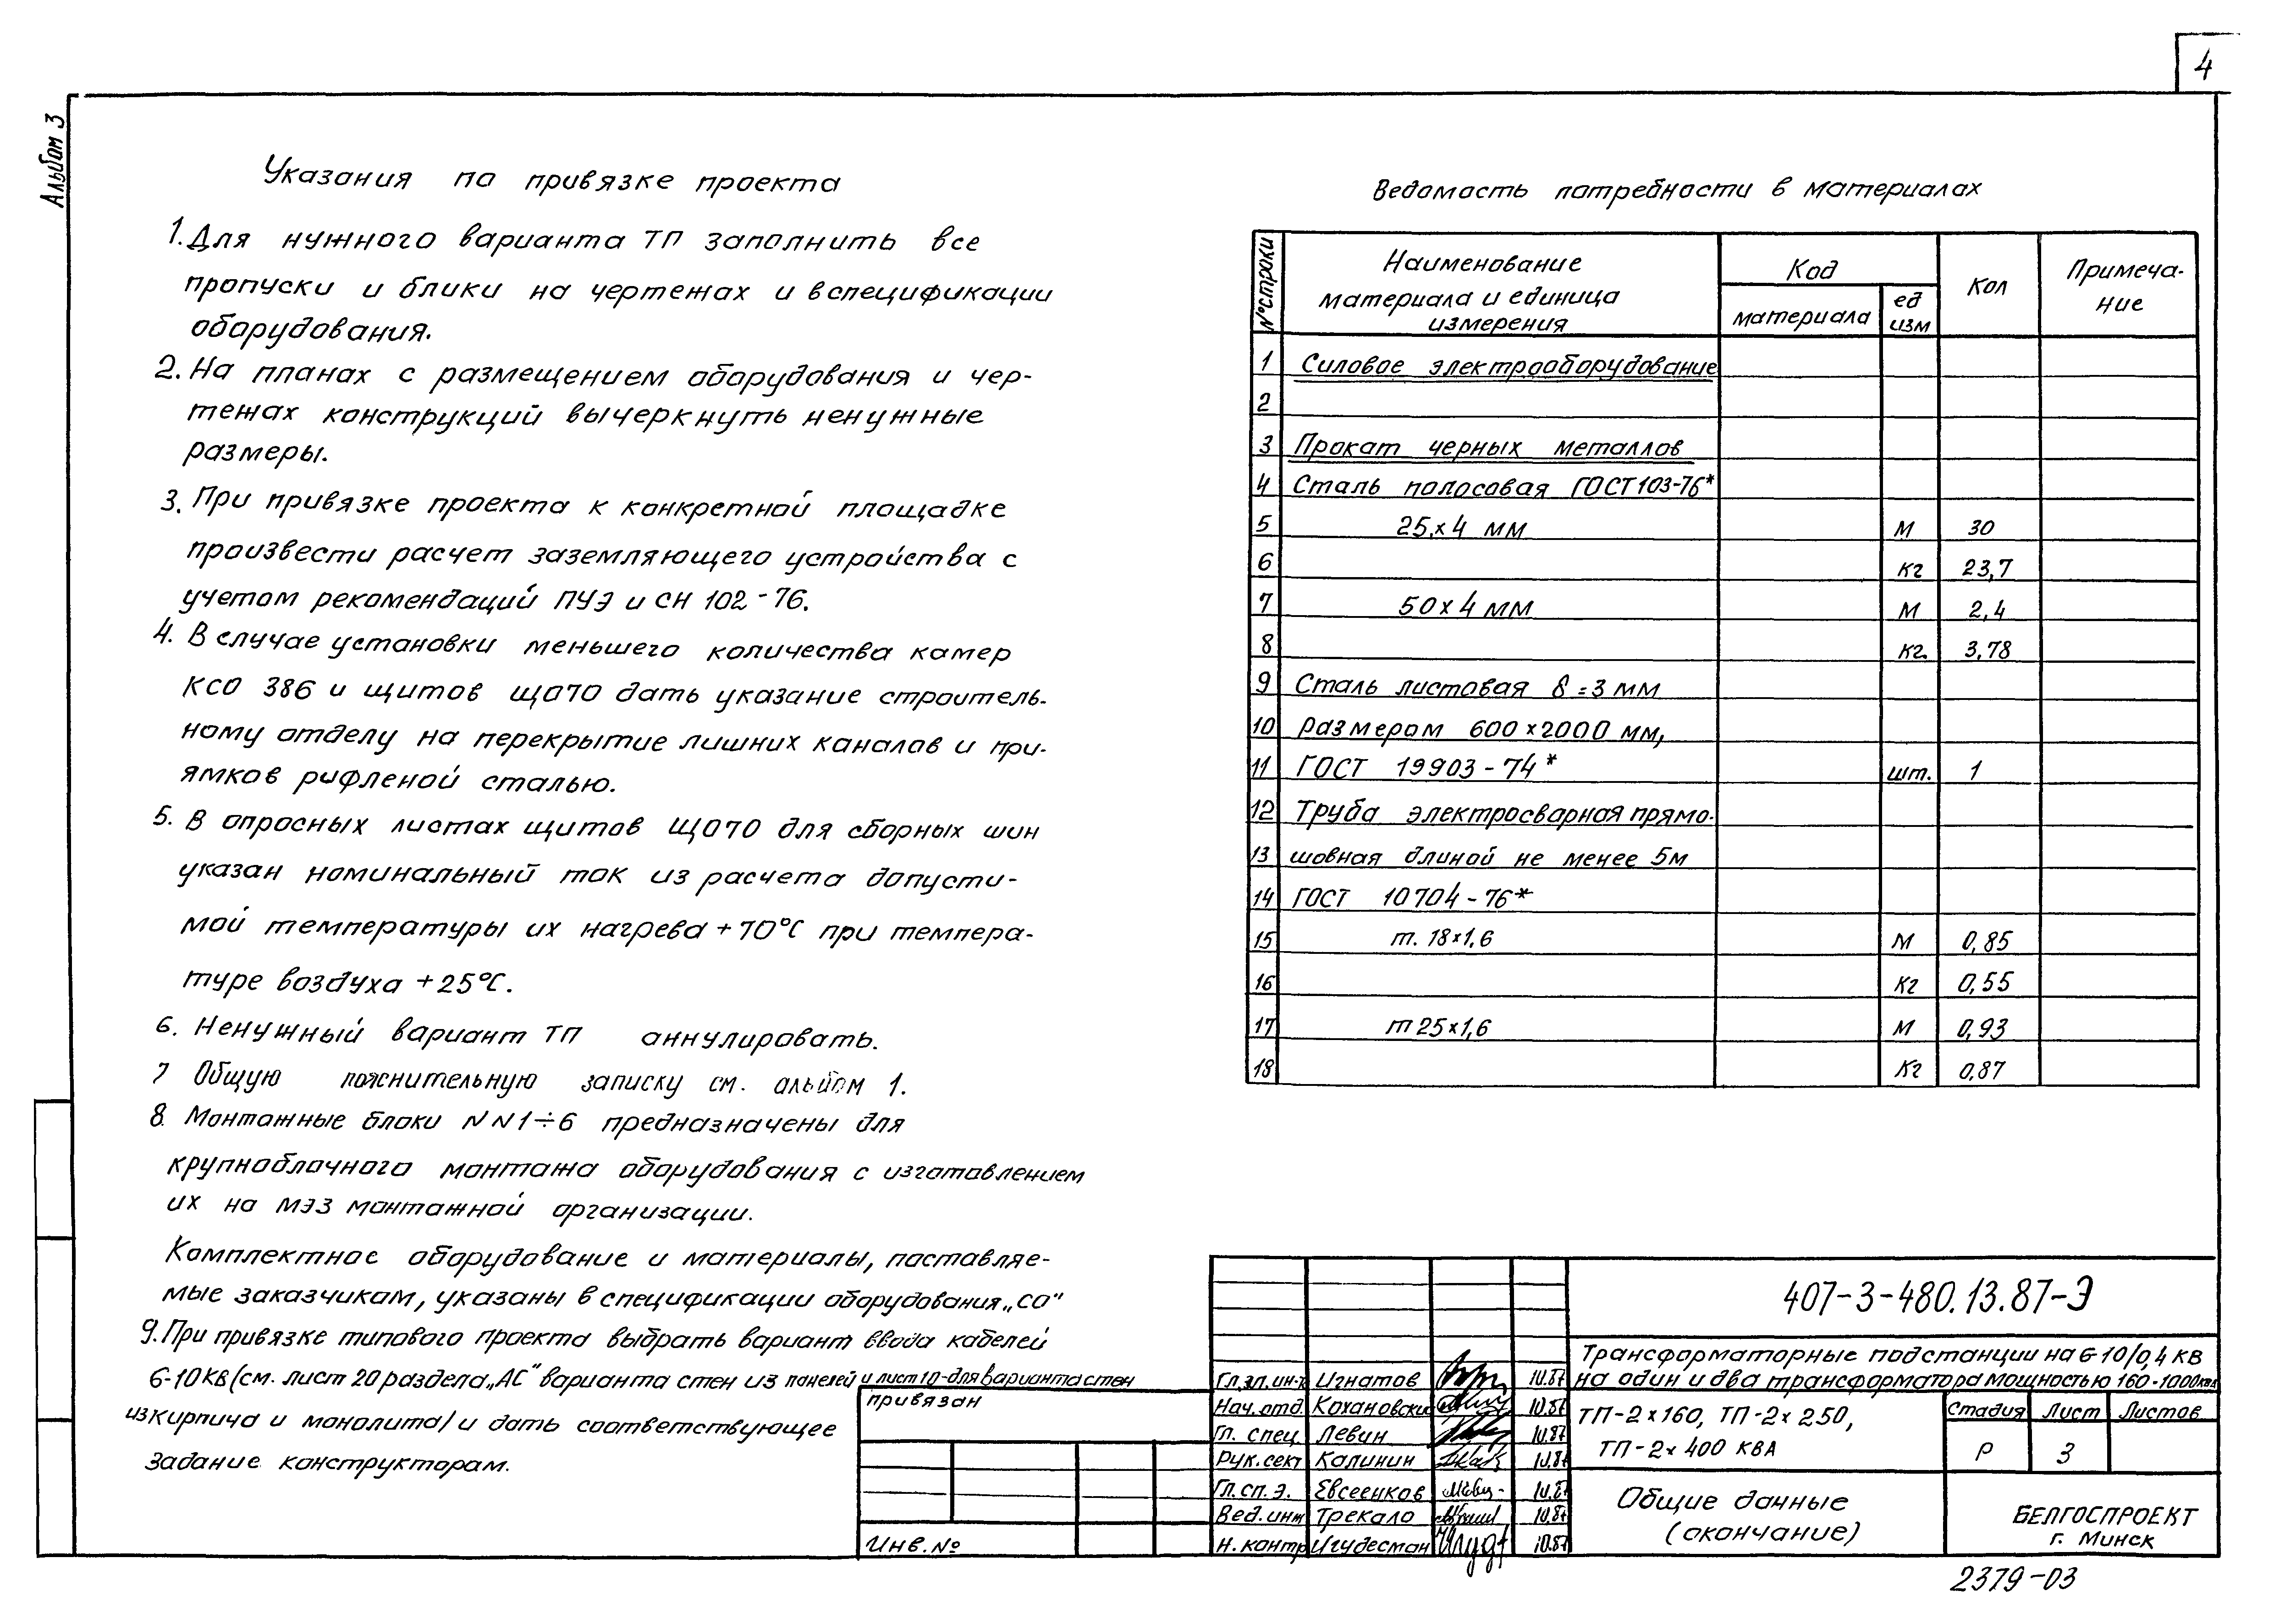 4
Альбом 3
Указания по привязке проекта
1. Для нужного варианта ТП заполнить все
пропуски и блики на чертежах и в спецификации
оборудования.
2. На планах с размещением оборудования и чер-
тежах конструкций вычеркнуть ненужные
размеры.
3. При привязке проекта к конкретной площадке
произвести расчет заземляющего устройства с
учетом рекомендаций ПУЭ и СН 102-76.
4. В случае установки меньшего количества камер
КСО 386 и щитов ЩО70 дать указание строитель-
ному отделу на перекрытие лишних каналов и при-
ямков рифленой сталью.
5. В опросных листах щитов ЩО70 для сборных шин
указан номинальный ток из расчета допусти-
мой температуры их нагрева +70°С при темпера-
туре воздуха +25°С.
6. Ненужный вариант ТП аннулировать.
7 Общую пояснительную записку см. альбом 1.
8. Монтажные блоки NN1÷6 предназначены для
крупноблочного монтажа оборудования с изготовлением
их на МЭЗ монтажной организации.
Комплектное оборудование и материалы, поставляе-
мые заказчиком, указаны в спецификации оборудования „СО"
9. При привязке типового проекта выбрать вариант ввода кабелей
6-10кВ (см. лист 20 раздела „АС" варианта стен из панелей и лист 10-для варианта стен
из кирпича и монолита/ и дать соответствующее
задание конструкторам.
Ведомость потребности в материалах
№ строки | Наименование материала и единица измерения | Код | Кол | Примеча-ние
материала | ед изм
1 Силовое электрооборудование
2
3 Прокат черных металлов
4 Сталь полосовая ГОСТ 103-76*
5 25×4 мм м 30
6 кг 23,7
7 50×4 мм м 2,4
8 кг. 3,78
9 Сталь листовая δ=3 мм
10 размером 600×2000 мм,
11 ГОСТ 19903-74* шт. 1
12 Труба электросварная прямо-
13 шовная длиной не менее 5м
14 ГОСТ 10704-76*
15 т. 18×1,6 м 0,85
16 кг 0,55
17 т 25×1,6 м 0,93
18 кг 0,87
407-3-480.13.87-Э
Трансформаторные подстанции на 6-10/0,4 кВ
на один и два трансформатора мощностью 160-1000ква
Гл.эл.ин-т Игнатов 10.87
Нач.отд. Кохановски 10.87
Гл. спец Левин 10.87
Рук.сект Калинин 10.87
Гл.сп.э. Евсеенков 10.87
Вед.инж Трекало 10.87
Н.контр Игудесман 10.87
ТП-2×160, ТП-2×250,
ТП-2×400 кВА
Стадия Лист Листов
Р 3
Общие данные
(окончание)
БЕЛГОСПРОЕКТ
г. Минск
Привязан
Инв.№
2379-03